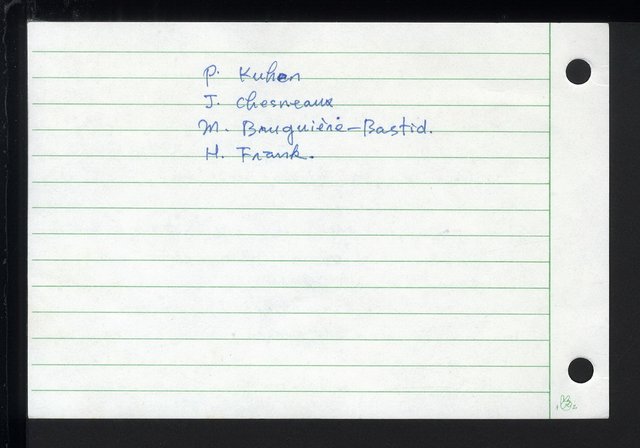 P. Kuhen
J. Chesneaux
M. Bruguière-Bastid.
H. Frank.